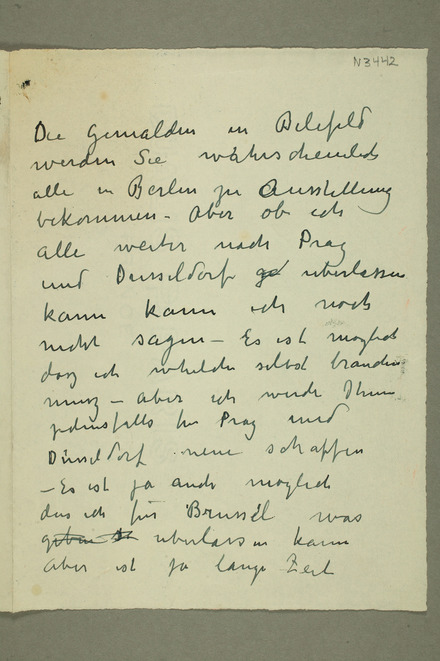 N3442
Die Gemälden in Bilefeld
werden Sie wahrscheinlich
alle in Berlin zu Ausstellung
bekommen – Aber ob ich
alle weiter nach Prag
und Dusseldorf überlassen
kann kann ich noch
nicht sagen – Es ist möglich
das ich selbst
muss – aber ich werde Ihnen
jedenfalls für Prag und
Düsseldorf neue schaffen
– Es ist ja auch möglich
das ich für Brussel was
geben überlassen kann
aber ist ja lange Zeit